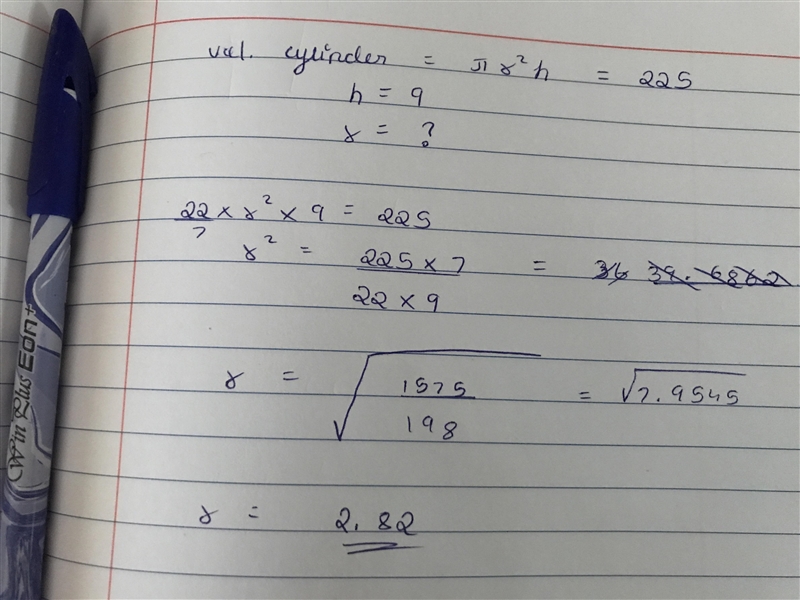 vol. cylinder = πr²h = 225
h = 9
r = ?
22/7 × r² × 9 = 225
r² = 225 × 7 / 22 × 9 =
r = √1575/198 = √7.9545
r = 2.82
Win Plus EON+